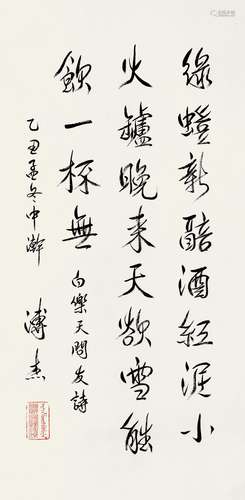 綠螘新醅酒紅泥小
火鑪晚来天欲雪能
飲一杯無 白樂天問友詩
乙丑孟冬中澣
溥杰